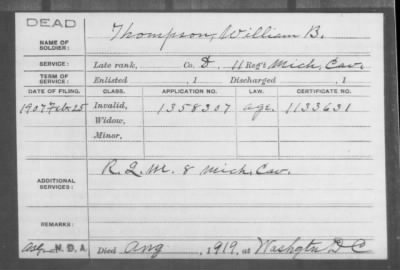 DEAD
NAME OF SOLDIER: Thompson, William B.
SERVICE: Late rank, Co. D. 11 Reg't Mich. Cav.
TERM OF SERVICE: Enlisted , 1 Discharged , 1
DATE OF FILING. CLASS. APPLICATION NO. LAW. CERTIFICATE NO.
1907 Feb. 25 Invalid, 1358307 age. 1133631
Widow,
Minor,
ADDITIONAL SERVICES: R.Q.M. 8 Mich. Cav.
REMARKS:
N.D.A. Died Aug , 1919, at Washgtn D C